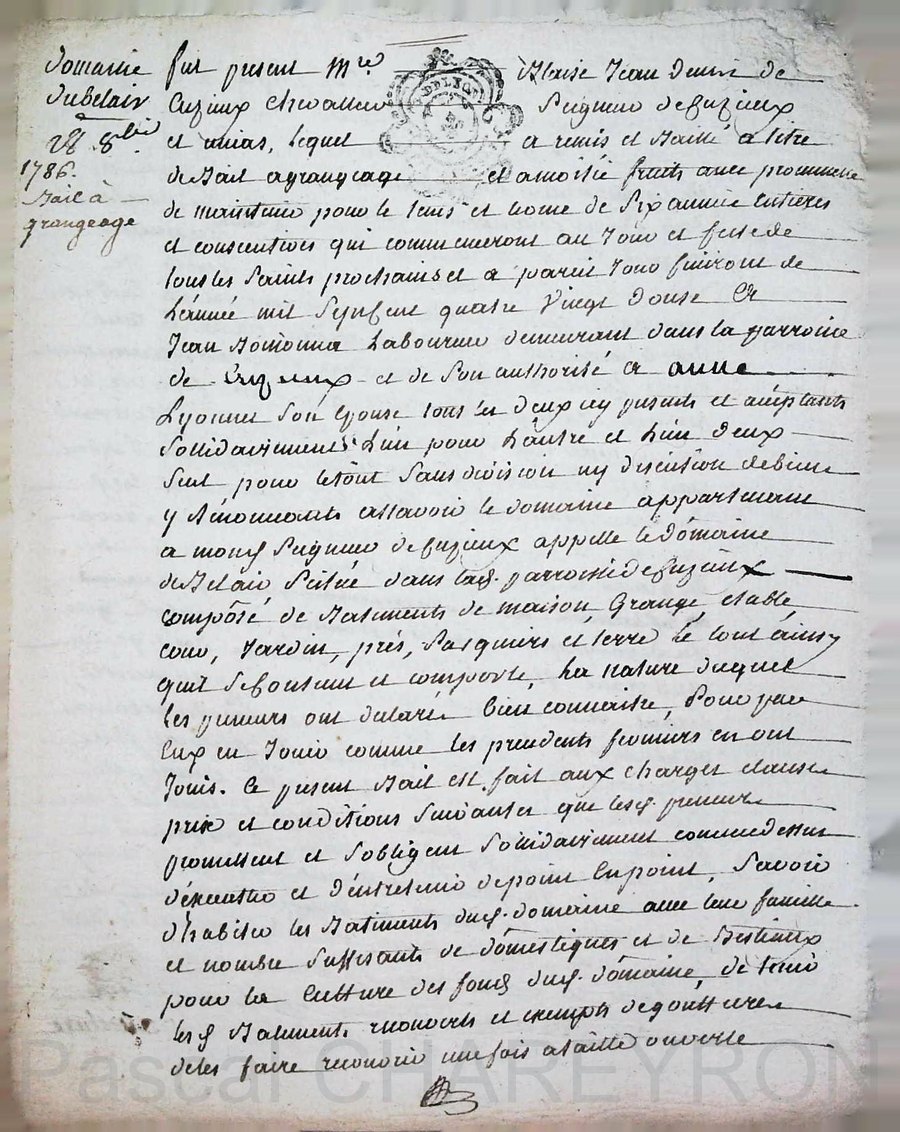 domaine
dubelair
28 8bre
1786.
Bail à
grangeage
fut present Mre Blaise Jean Denis de
Cuzieux chevallier Seigneur de Cuzieux
et unias, lequel a remis et Baillé a titre
de Bail agrangeage et amoitié fruits avec promesse
de maintenir pour le tems et terme de Six année entieres
et consecutives qui commenceront au Jour et feste de
tous les Saints prochains et a pareil Jour finiront de
L'année mil Sept Cent quatre Vingt douse a
Jean Laboureur demeurant dans la parroisse
de Cuzieux et de Son authorité a anne
Lyonnet Son Epouse tous les deux icy presents et acceptants
Sollidairement L'un pour L'autre et L'un deux
Seul pour letout Sans division ny discution debiens
y Renoncants assavoir le domaine appartenant
a mond Seigneur de Cuzieux appellé le domaine
de Belair Scitué dans lad. parroisse de Cuzieux
composté de Batiments de maison, Grange, etable,
cour, Jardin, prés, Pasquiers et terre le tout ainsy
quil Se Contient et comporte, La nature duquel
les preneurs ont declaré bien connaitre, Pour par
Eux en Jouir comme les precedents fermiers en ont
Jouis. Ce present Bail est fait aux charges clauses
prix et conditions Suivantes que lesd. preneurs
promettent et S'obligent Sollidairement comme dessus
d'éxecuter et d'éntretenir de point En point, Savoir
d'habiter les Batiments dud. domaine avec leur famille
et nombre Suffisants de domestiques et de Bestiaux
pour la Culture des fonds dud. domaine, de tenir
lesd Batiments recouverts et exempts de gouttieres
deles faire recouvrir une fois a taille ouverte
Pascal CHAREYRON